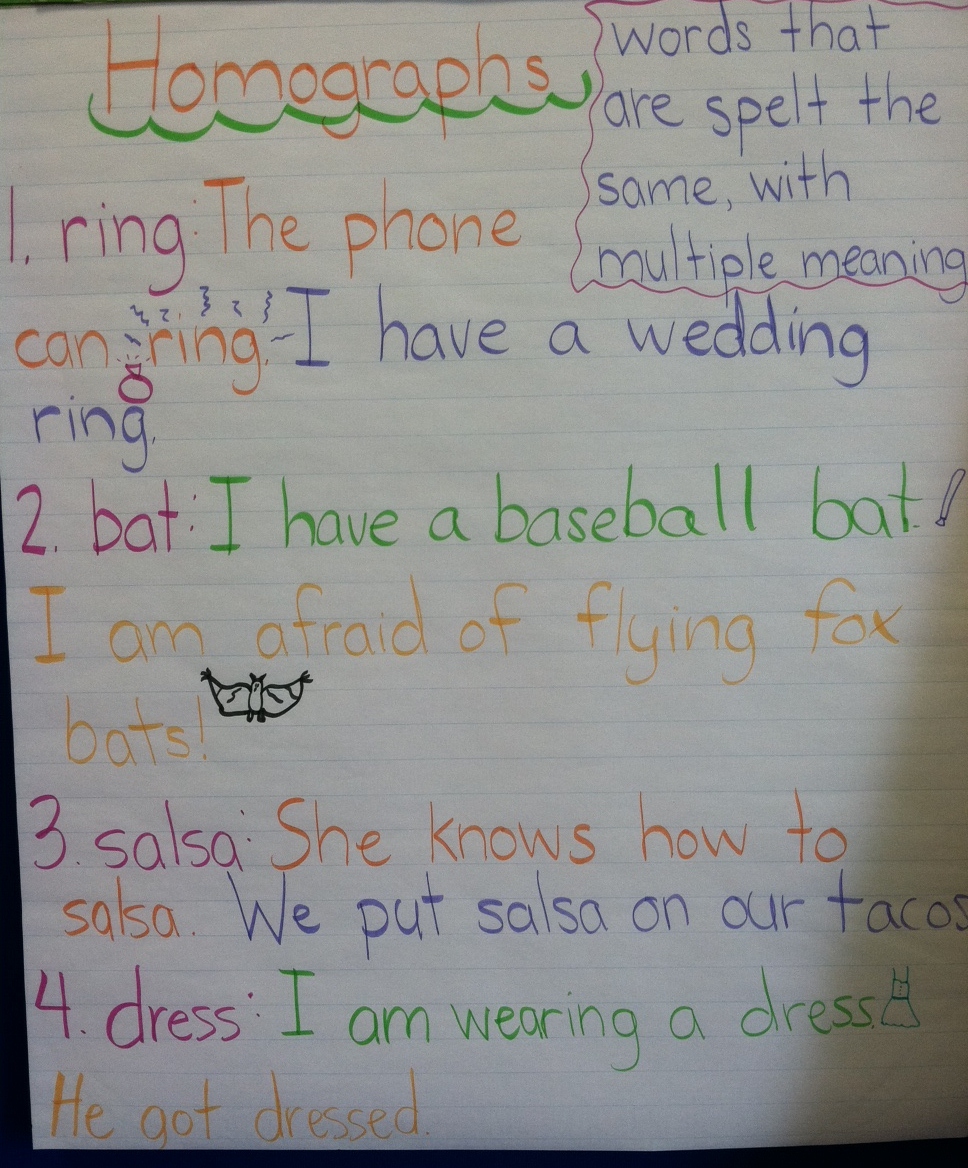 Homographs
words that
are spelt the
same, with
multiple meaning
1. ring: The phone
can ring. - I have a wedding
ring.
2. bat: I have a baseball bat.
I am afraid of flying fox
bats!
3. salsa: She knows how to
salsa. We put salsa on our tacos
4. dress: I am wearing a dress.
He got dressed.